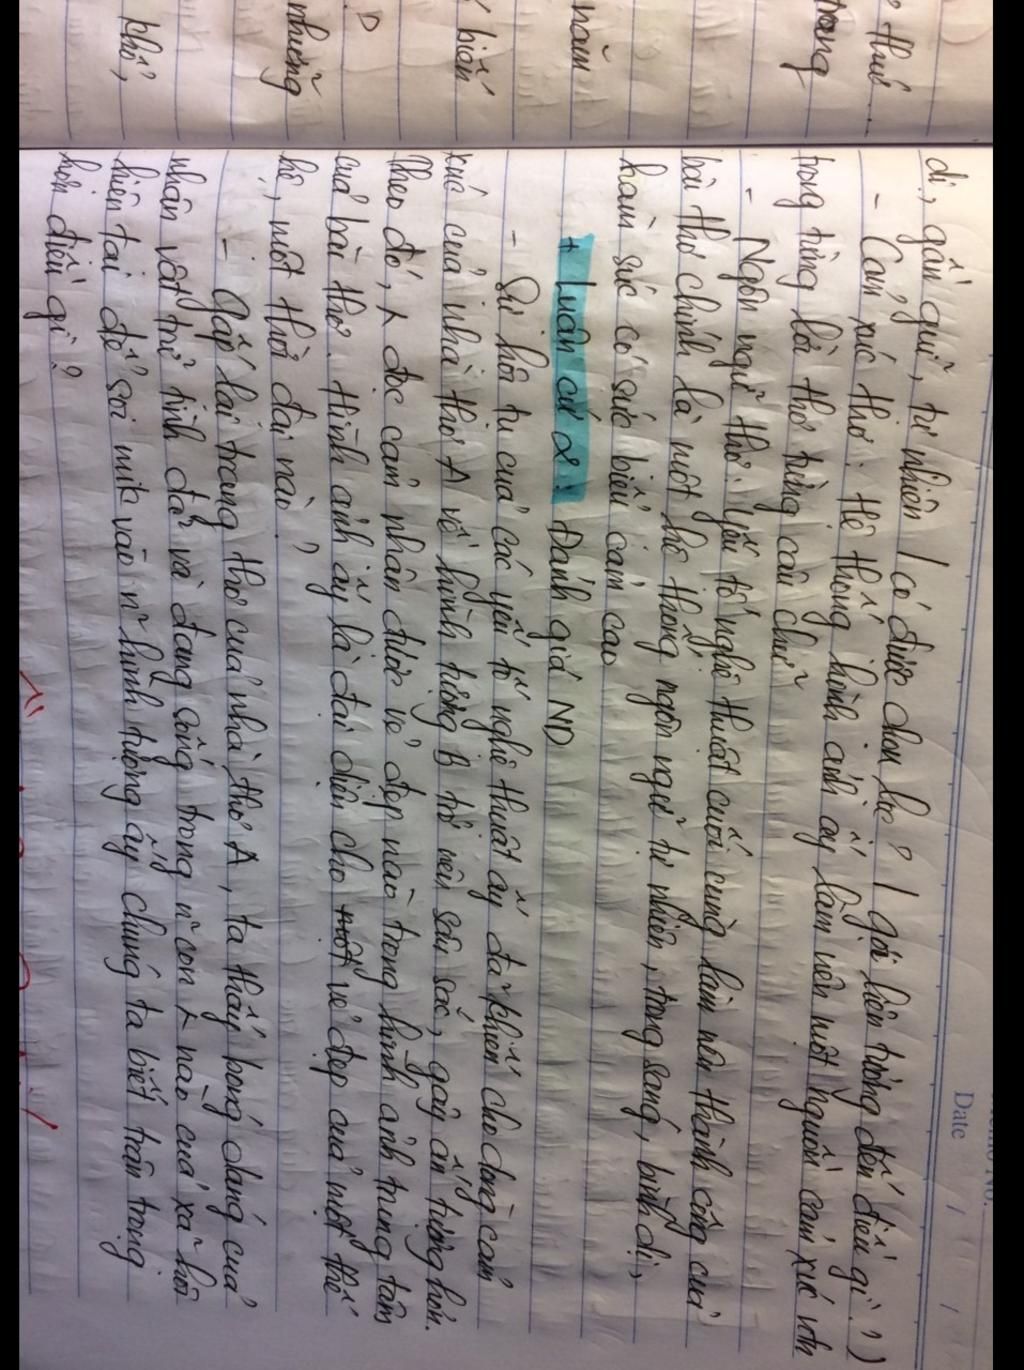 Date / /
dị, gần gũi, tự nhiên / có được chọn lọc? / gợi liên tưởng đến điều gì?))
- Cảm xúc thơ: Hệ thống hình ảnh ấy làm nên một nguồn cảm xúc
trong từng lời thơ từng câu chữ
- Ngôn ngữ thơ: yếu tố nghệ thuật cuối cùng làm nên thành công của
bài thơ chính là một hệ thống ngôn ngữ tự nhiên, trong sáng, bình dị,
hàm súc có sức biểu cảm cao
+ Luận cứ 2: Đánh giá ND
- Sự hội tụ của các yếu tố nghệ thuật ấy đã khiến cho dòng cảm
xúc của nhà thơ A về hình tượng B trở nên sâu sắc, gây ấn tượng hơn.
Theo đó, λ đọc cảm nhận được vẻ đẹp nào trong hình ảnh trung tâm
của bài thơ. Hình ảnh ấy là đại diện cho vẻ đẹp của một thế
hệ, một thời đại nào?
- Gấp lại trang thơ của nhà thơ A, ta thấy bóng dáng của
nhân vật trữ tình đã và đang sống trong n~ con λ nào của xã hội
hiện tại để soi mik vào n~ hình tượng ấy chúng ta biết trân trọng
hơn điều gì?
thứ...
trong
năm
biến
D
những
khổ,